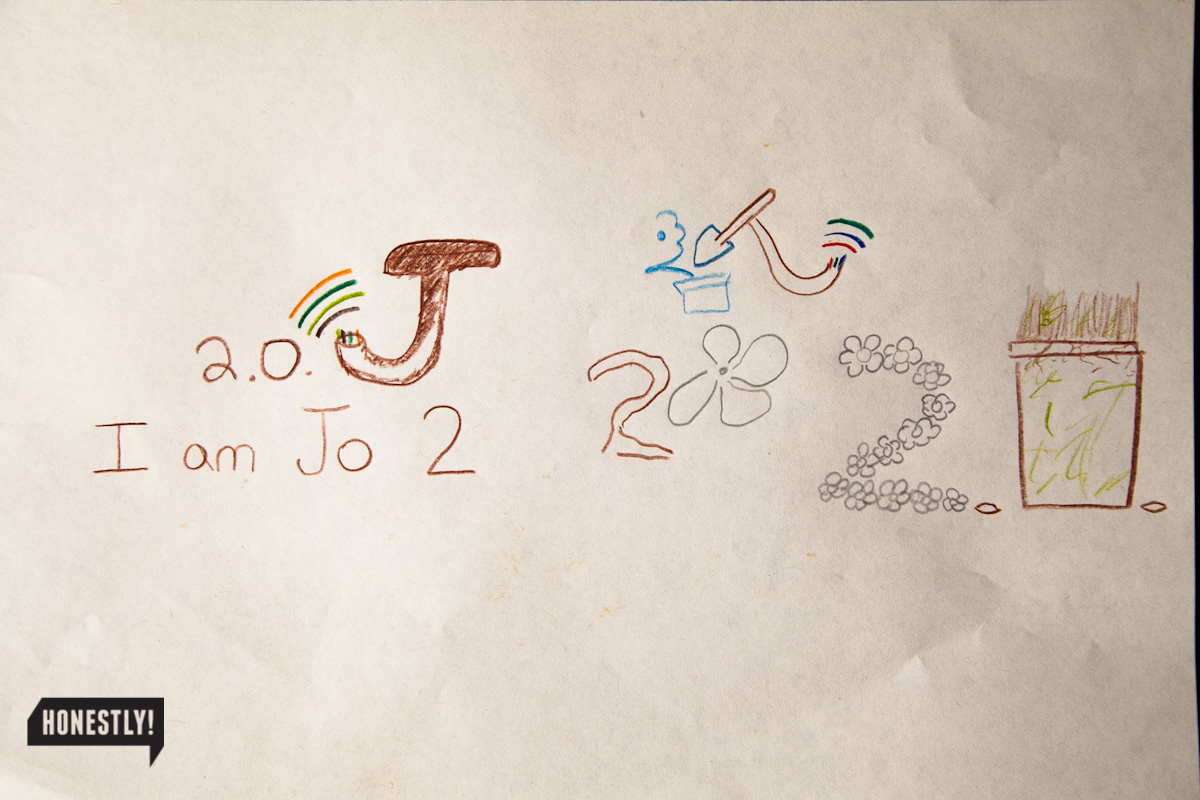 2.0. J
I am Jo 2
2
2.
HONESTLY!